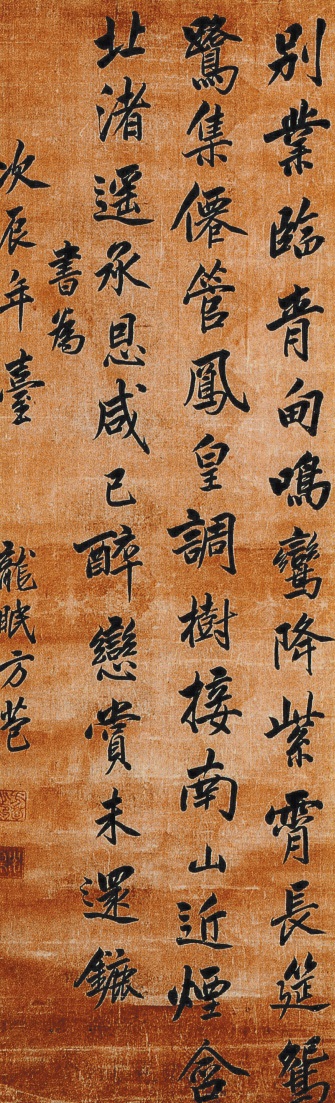 別業臨青甸鳴鸞降紫霄長筵鴛
鷺集僊管鳳皇調樹接南山近煙含
北渚遥承恩咸已醉戀賞未還鑣
書為
次辰年臺
龍眠方苞